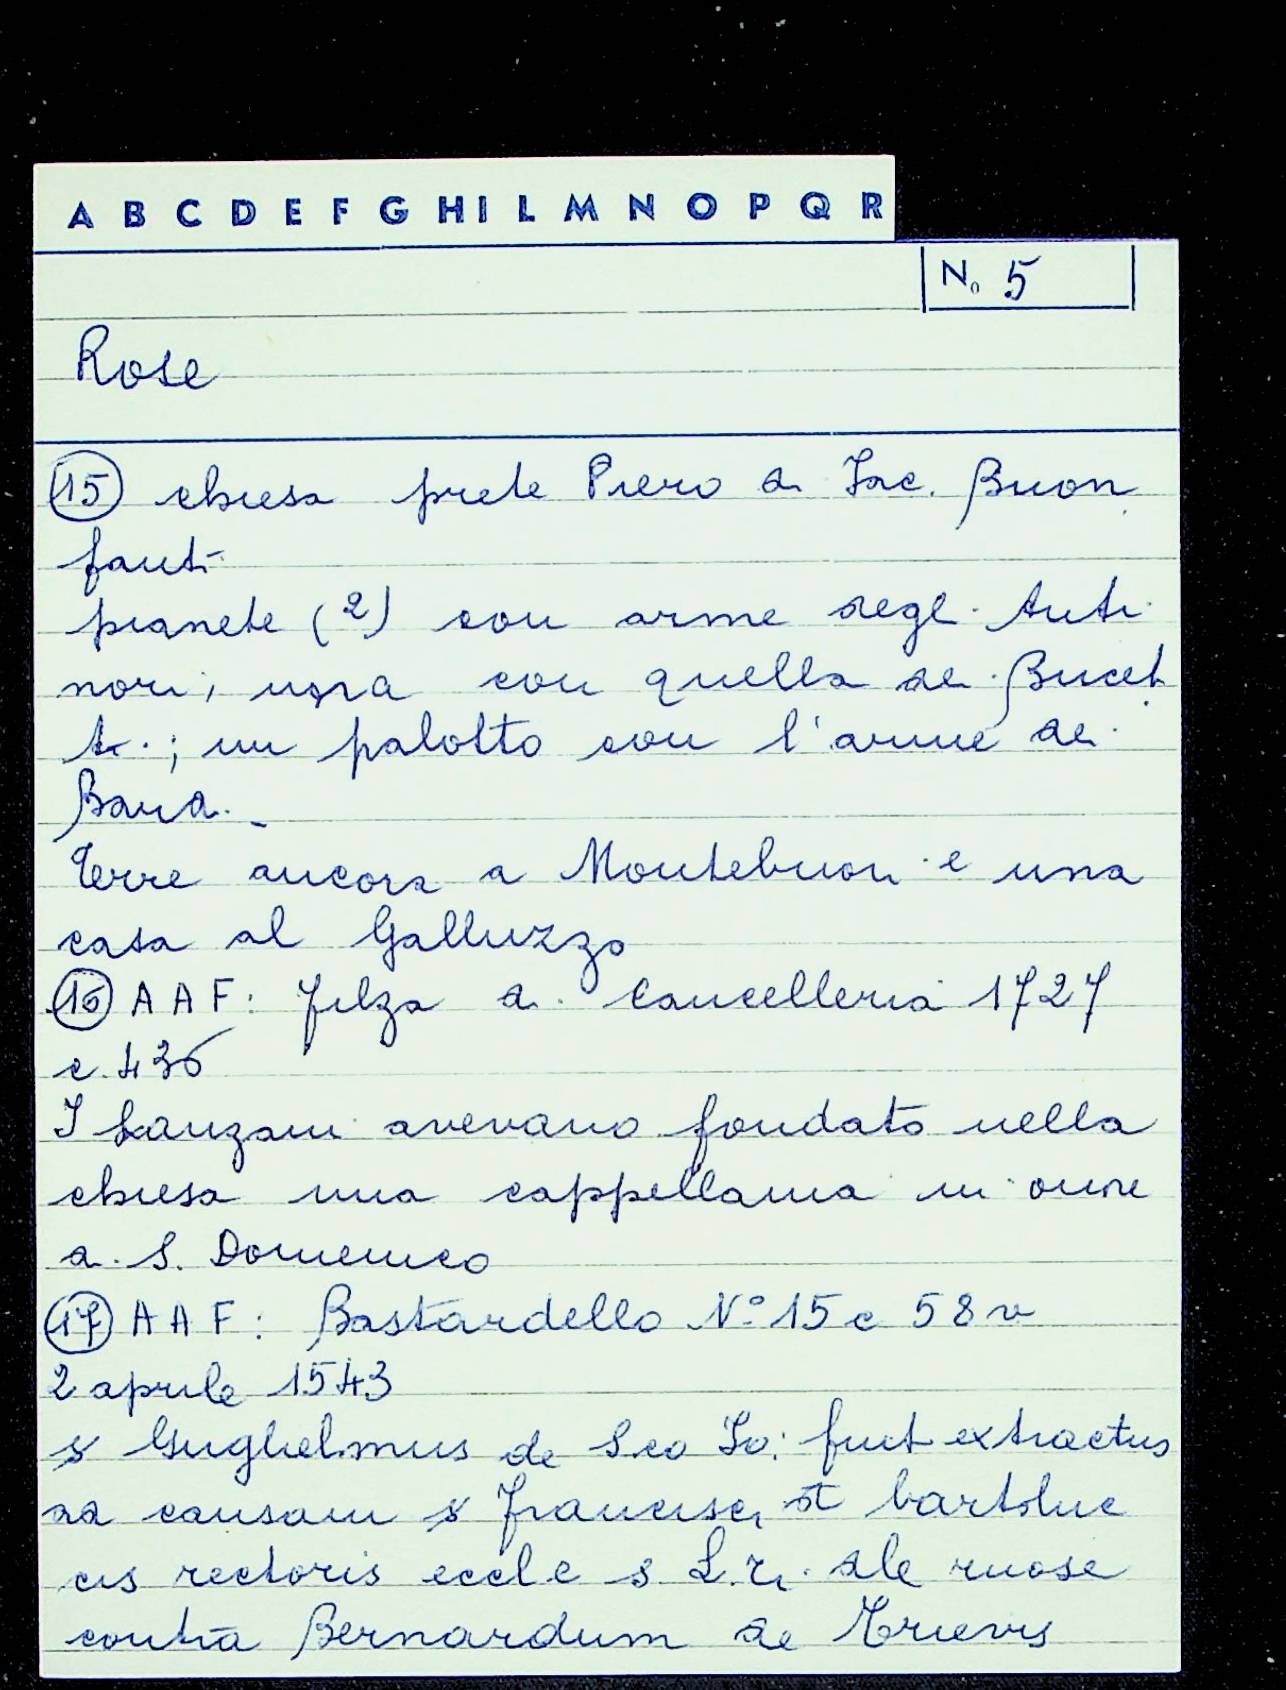 A B C D E F G H I L M N O P Q R
N. 5
Rose
15 chiesa prete Piero di Jac. Buon
fanti
pianete (2) con arme degli Anti
nori, una con quella dei Bucet
ti; un palotto con l'arme dei
Bardi.
Terre ancora a Montebuoni e una
casa al Galluzzo
16 A A F: filza di Cancelleria 1727
c. 436
I Lanzani avevano fondato nella
chiesa una cappellania in onore
di S. Domenico
17 A A F: Bastardello N° 15 c 58 v
2 aprile 1543
s Guglielmus de Sco Jo: fuit extractus
ad causam s Francisci bartoluc
cis rectoris eccl e s L. ale ruose
contra Bernardum de